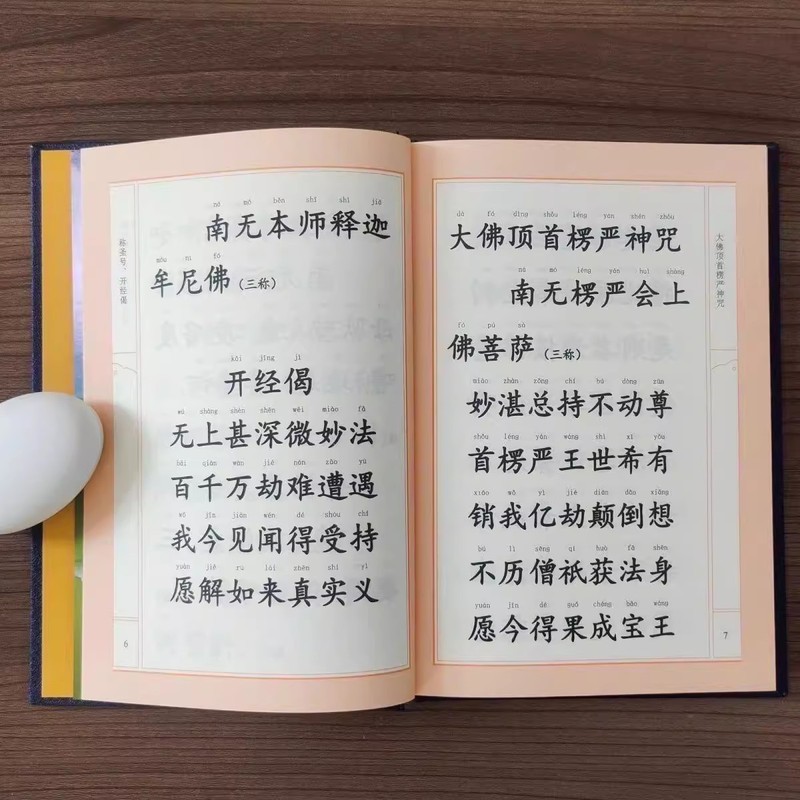 称圣号、开经偈
nā mó běn shī shì jiā
南无本师释迦
móu ní fó
牟尼佛(三称)
kāi jīng jì
开经偈
wú shàng shèn shēn wēi miào fǎ
无上甚深微妙法
bǎi qiān wàn jié nán zāo yù
百千万劫难遭遇
wǒ jīn jiàn wén dé shòu chí
我今见闻得受持
yuàn jiě rú lái zhēn shí yì
愿解如来真实义
6
dà fó dǐng shǒu léng yán shén zhòu
大佛顶首楞严神咒
nā mó léng yán huì shàng
南无楞严会上
fó pú sà
佛菩萨(三称)
miào zhàn zǒng chí bú dòng zūn
妙湛总持不动尊
shǒu léng yán wáng shì xī yǒu
首楞严王世希有
xiāo wǒ yì jié diān dǎo xiǎng
销我亿劫颠倒想
bù lì sēng qí huò fǎ shēn
不历僧祇获法身
yuàn jīn dé guǒ chéng bǎo wáng
愿今得果成宝王
大佛顶首楞严神咒
7